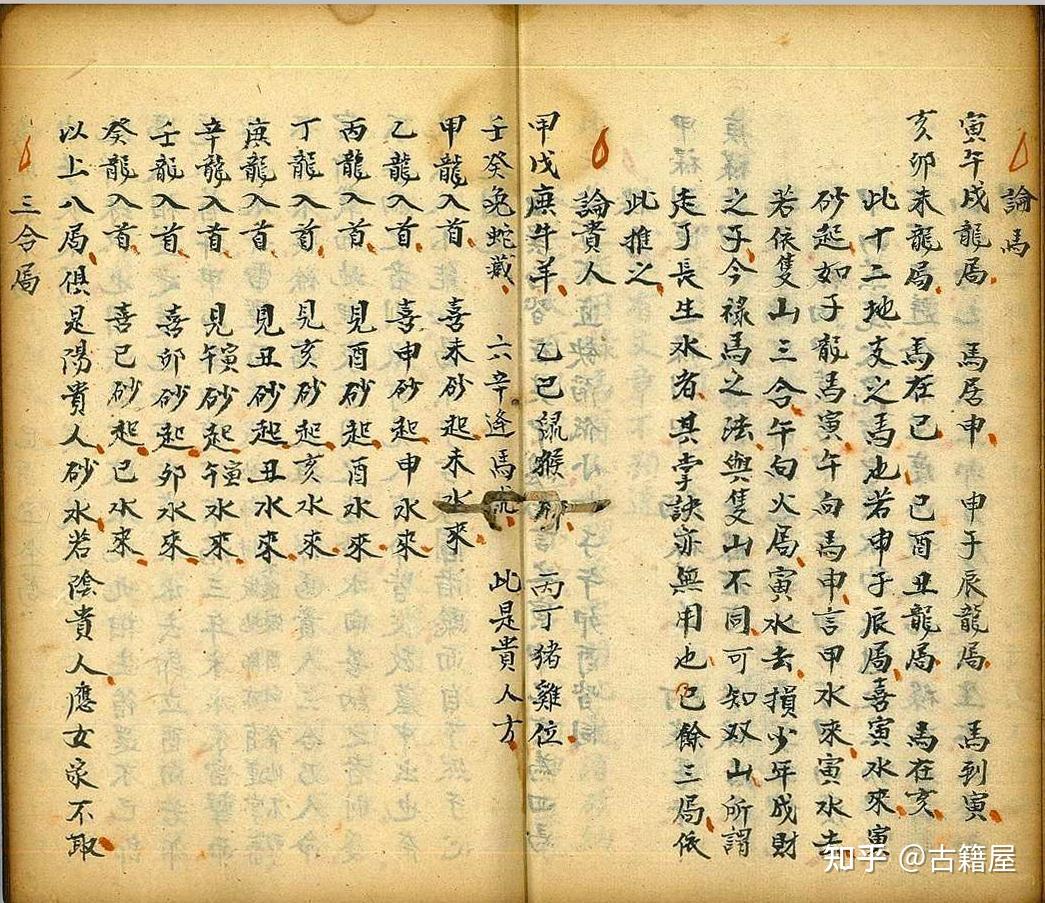 論馬
寅午戌龍局 馬居申 申子辰龍局 馬到寅
亥卯未龍局 馬在巳 巳酉丑龍局 馬在亥
此十二地支之馬也若申子辰局喜寅水來寅
砂起如子龍馬寅午向馬申言甲水來寅水去
若依隻山三合午向火局寅水去損少年成財
之子今祿馬之法與隻山不同可知双山所謂
走了長生水者其掌訣亦無用也已餘三局依
此推之
論貴人
甲戊庚牛羊 乙己鼠猴 丙丁猪雞位
壬癸兔蛇藏 六辛逢馬虎 此是貴人方
甲龍入首 喜未砂起未水來
乙龍入首 喜申砂起申水來
丙龍入首 見酉砂起酉水來
丁龍入首 見亥砂起亥水來
庚龍入首 見丑砂起丑水來
辛龍入首 見午寅砂起午寅水來
壬龍入首 喜卯砂起卯水來
癸龍入首 喜巳砂起巳水來
以上八局俱是陽貴人砂水若陰貴人應女家不取
三合局
知乎 @古籍屋